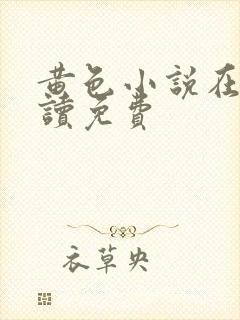 黄色小說在
讀免費
衣草央